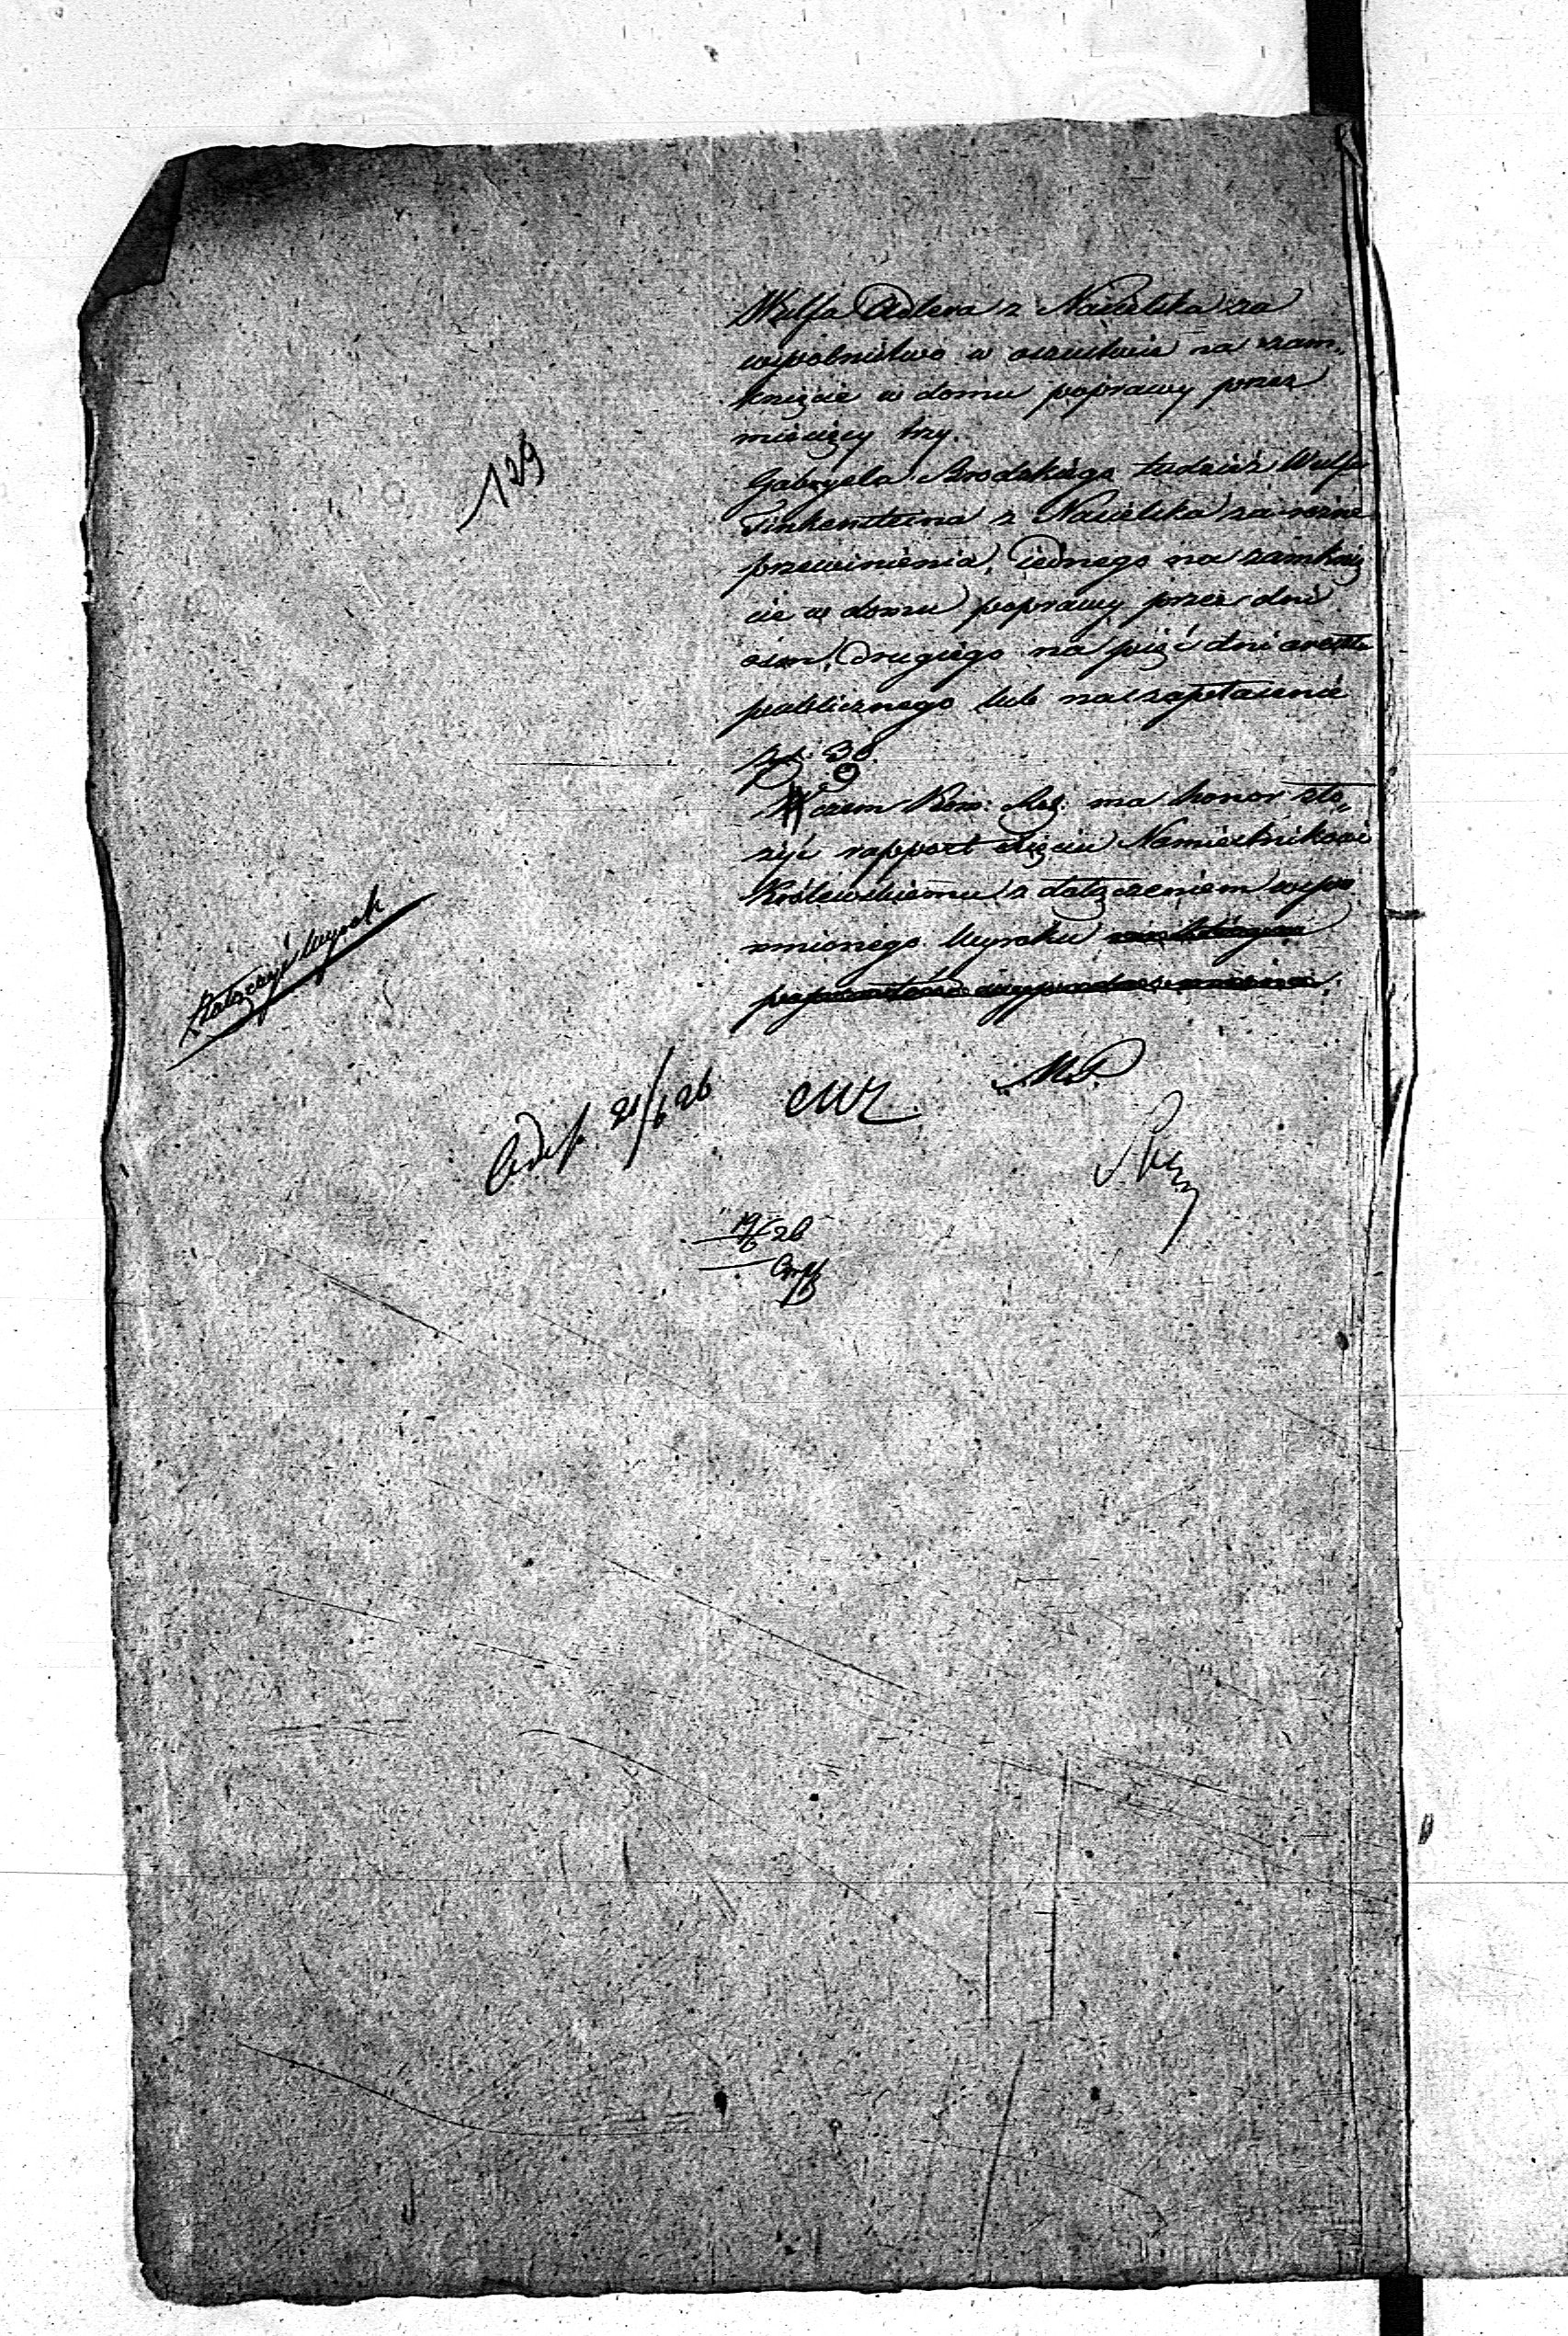 129
Wulfa Adlera z Nasielska za
wspolnictwo w oszustwie na zam„
knięcie w domu poprawy przez
miesięcy trzy.
Gabryela Brodzkiego tudzież Wulfa
Finkensteina z Nasielska za rożne
przewinienia, iednego na zamknię
cie w domu poprawy przez dni
ośm, drugiego na pięć dni aresztu
publicznego lub na zapłacenie
30.
czem Kom: Rzą: ma honor zło„
żyć rapport Xięciu Namiestnikowi
Królewskiemu z dołączeniem wspo
mnionego Wyroku
Dołączyć Wyrok
M.P.
Exp. 21/6 26
19/6 26